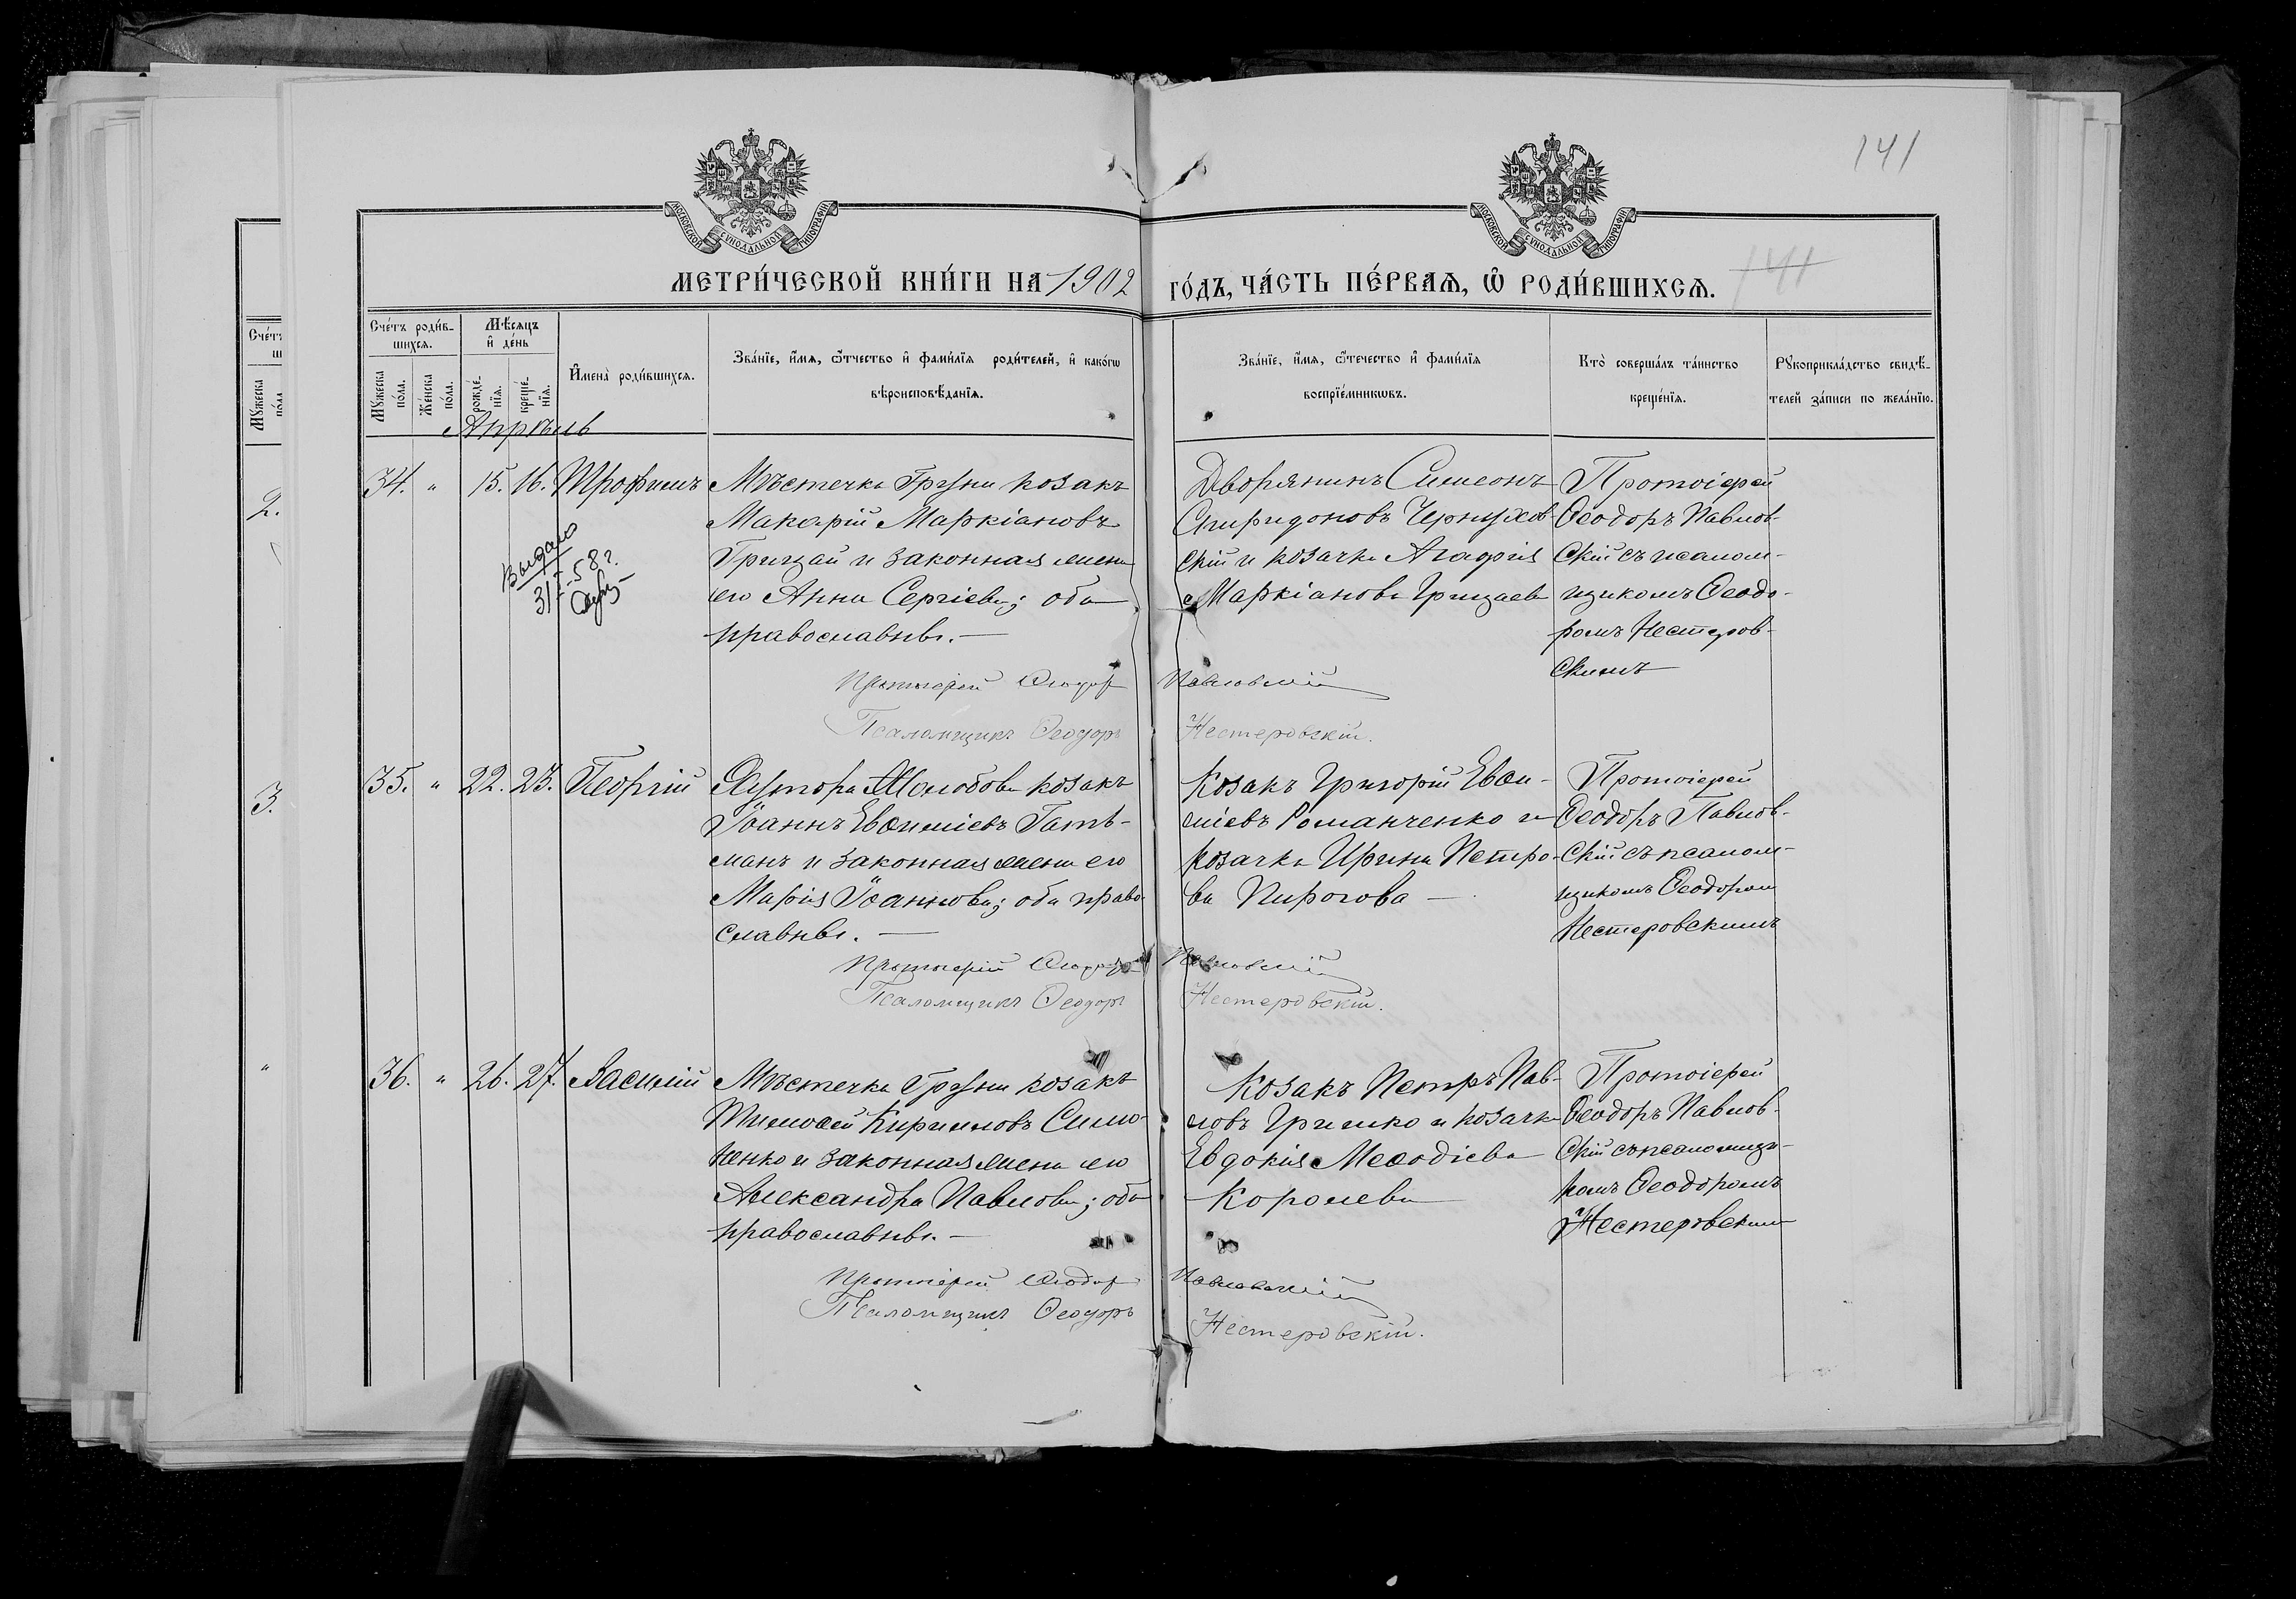 141
МОСКОВСКОЙ СУНОДАЛЬНОЙ ТИПОГРАФІИ
МОСКОВСКОЙ СУНОДАЛЬНОЙ ТИПОГРАФІИ
МЕТРИ́ЧЕСКОЙ КНИ́ГИ НА 1902
ГО́ДЪ, ЧА́СТЬ ПЕ́РВАѦ, Ѡ҆ РОДИ́ВШИХСѦ.
141
Сче́тъ роди́в-
шихсѧ.
Мѣ́сѧцъ
и҆ де́нь
Мꙋ́жеска по́ла.
Же́нска по́ла.
рожде́-нїѧ.
креще́-нїѧ.
И҆мена̀ роди́вшихсѧ.
Зва́нїе, и҆́мѧ, ѻ҆́тчество и҆ фами́лїѧ роди́телей, и҆ како́гѡ
вѣроисповѣ́данїѧ.
Зва́нїе, и҆́мѧ, ѻ҆́течество и҆ фами́лїѧ
воспрїе́мникѡвъ.
Кто̀ соверша́лъ та́инство
креще́нїѧ.
Рꙋкоприкла́дство свидѣ́-
телей за́писи по жела́нїю.
Сче́тъ
ш
Мꙋ́жеска
по́ла
2.
3.
"
Апрѣль
34. " 15. 16. Трофимъ
Мѣстечка Груни козакъ
Макарій Маркіановъ
Грицай и законная жена
его Анна Сергіева; оба
православны.
Дворянинъ Симеонъ
Спиридоновъ Чернухов-
скій и козачка Агафія
Маркіанова Грицаева
Протоіерей
Ѳеодоръ Павлов-
скій съ псалом-
щикомъ Ѳеодо-
ромъ Нестеров-
скимъ
Выдано
31/I-58 г.
Протоіерей Ѳеодор Павловскій
Псаломщикъ Ѳеодоръ Нестеровскій.
35. " 22. 23. Георгій
Хутора Молобова козакъ
Іоаннъ Евѳиміевъ Геть-
манъ и законная жена его
Марія Іоаннова; оба право-
славны.
Козакъ Григорій Евѳи-
міевъ Романченко и
козачка Ирина Петро-
ва Пирогова
Протоіерей
Ѳеодоръ Павлов-
скій съ псалом-
щикомъ Ѳеодором
Нестеровскимъ
Протоіерей Ѳеодор Павловскій
Псаломщикъ Ѳеодоръ Нестеровскій.
36. " 26. 27. Василій
Мѣстечка Груни козакъ
Тимоѳей Кирилловъ Симо-
ненко и законная жена его
Александра Павлова; оба
православны.
Козакъ Петръ Пав-
ловъ Гришко и козачка
Евдокія Меѳодіева
Королева
Протоіерей
Ѳеодоръ Павлов-
скій съ псаломщи-
комъ Ѳеодоромъ
Нестеровским
Протоіерей Ѳеодор Павловскій
Псаломщикъ Ѳеодоръ Нестеровскій.